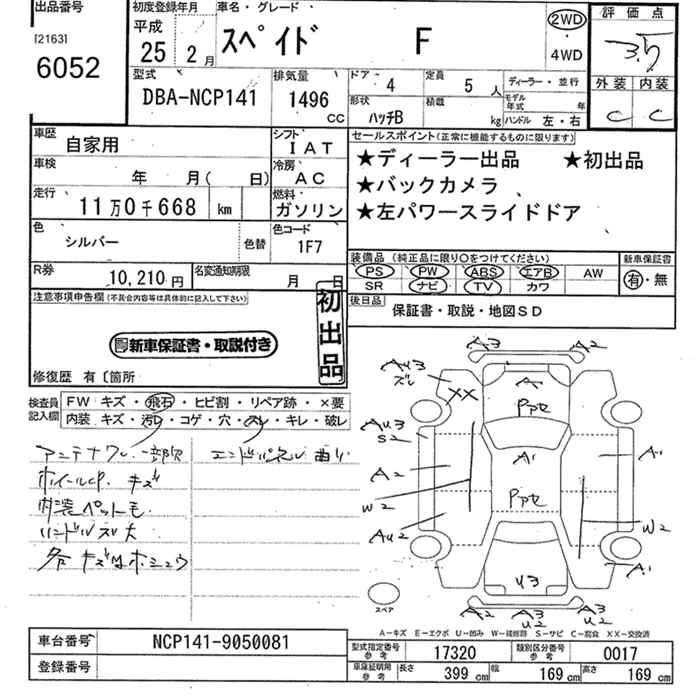 出品番号
[2163]
6052
初度登録年月
平成
25 2月
車名・グレード
スペイド F
2WD
4WD
評価点
3.5
外装 内装
C C
型式
DBA-NCP141
排気量
1496
CC
ドア 4
定員 5 人
ディーラー・並行
形状
ハッチB
積載 kg
モデル年式 年
ハンドル 左・右
車歴
自家用
シフト
IAT
車検
年 月( 日)
冷房
AC
走行
11万0千668 km
燃料
ガソリン
色
シルバー
色替
色コード
1F7
R券
10,210円
名変通知期限
月 日
セールスポイント(正常に機能するものに限ります)
★ディーラー出品 ★初出品
★バックカメラ
★左パワースライドドア
装備品 (純正品に限り○をつけてください)
PS PW ABS エアB AW
SR ナビ TV カワ
新車保証書
有・無
後日品
保証書・取説・地図SD
注意事項申告欄(不具合内容等は具体的に記入して下さい)
新車保証書・取説付き
初出品
修復歴 有〔箇所
検査員
記入欄
FW キズ・飛石・ヒビ割・リペア跡・×要
内装 キズ・汚れ・コゲ・穴・スレ・キレ・破レ
アンテナワレ一部欠
エンドパネル曲り
ホイールCP キズ
内装ペット毛
ハンドルスレ大
各キズ凹ホシュウ
A3
A2
AU3
ズレ
XX
A
Ppte
AU3
S2
A1
A1
A2
Ppte
W2
W2
AU2
A1
U3
A2
A3
U2
A3
U2
スペア
A-キズ E-エクボ U-凹み W-補修跡 S-サビ C-腐食 XX-交換済
車台番号
NCP141-9050081
登録番号
型式指定番号
参考
17320
類別区分番号
参考
0017
車庫証明用
参考
長さ 399 cm
幅 169 cm
高さ 169 cm